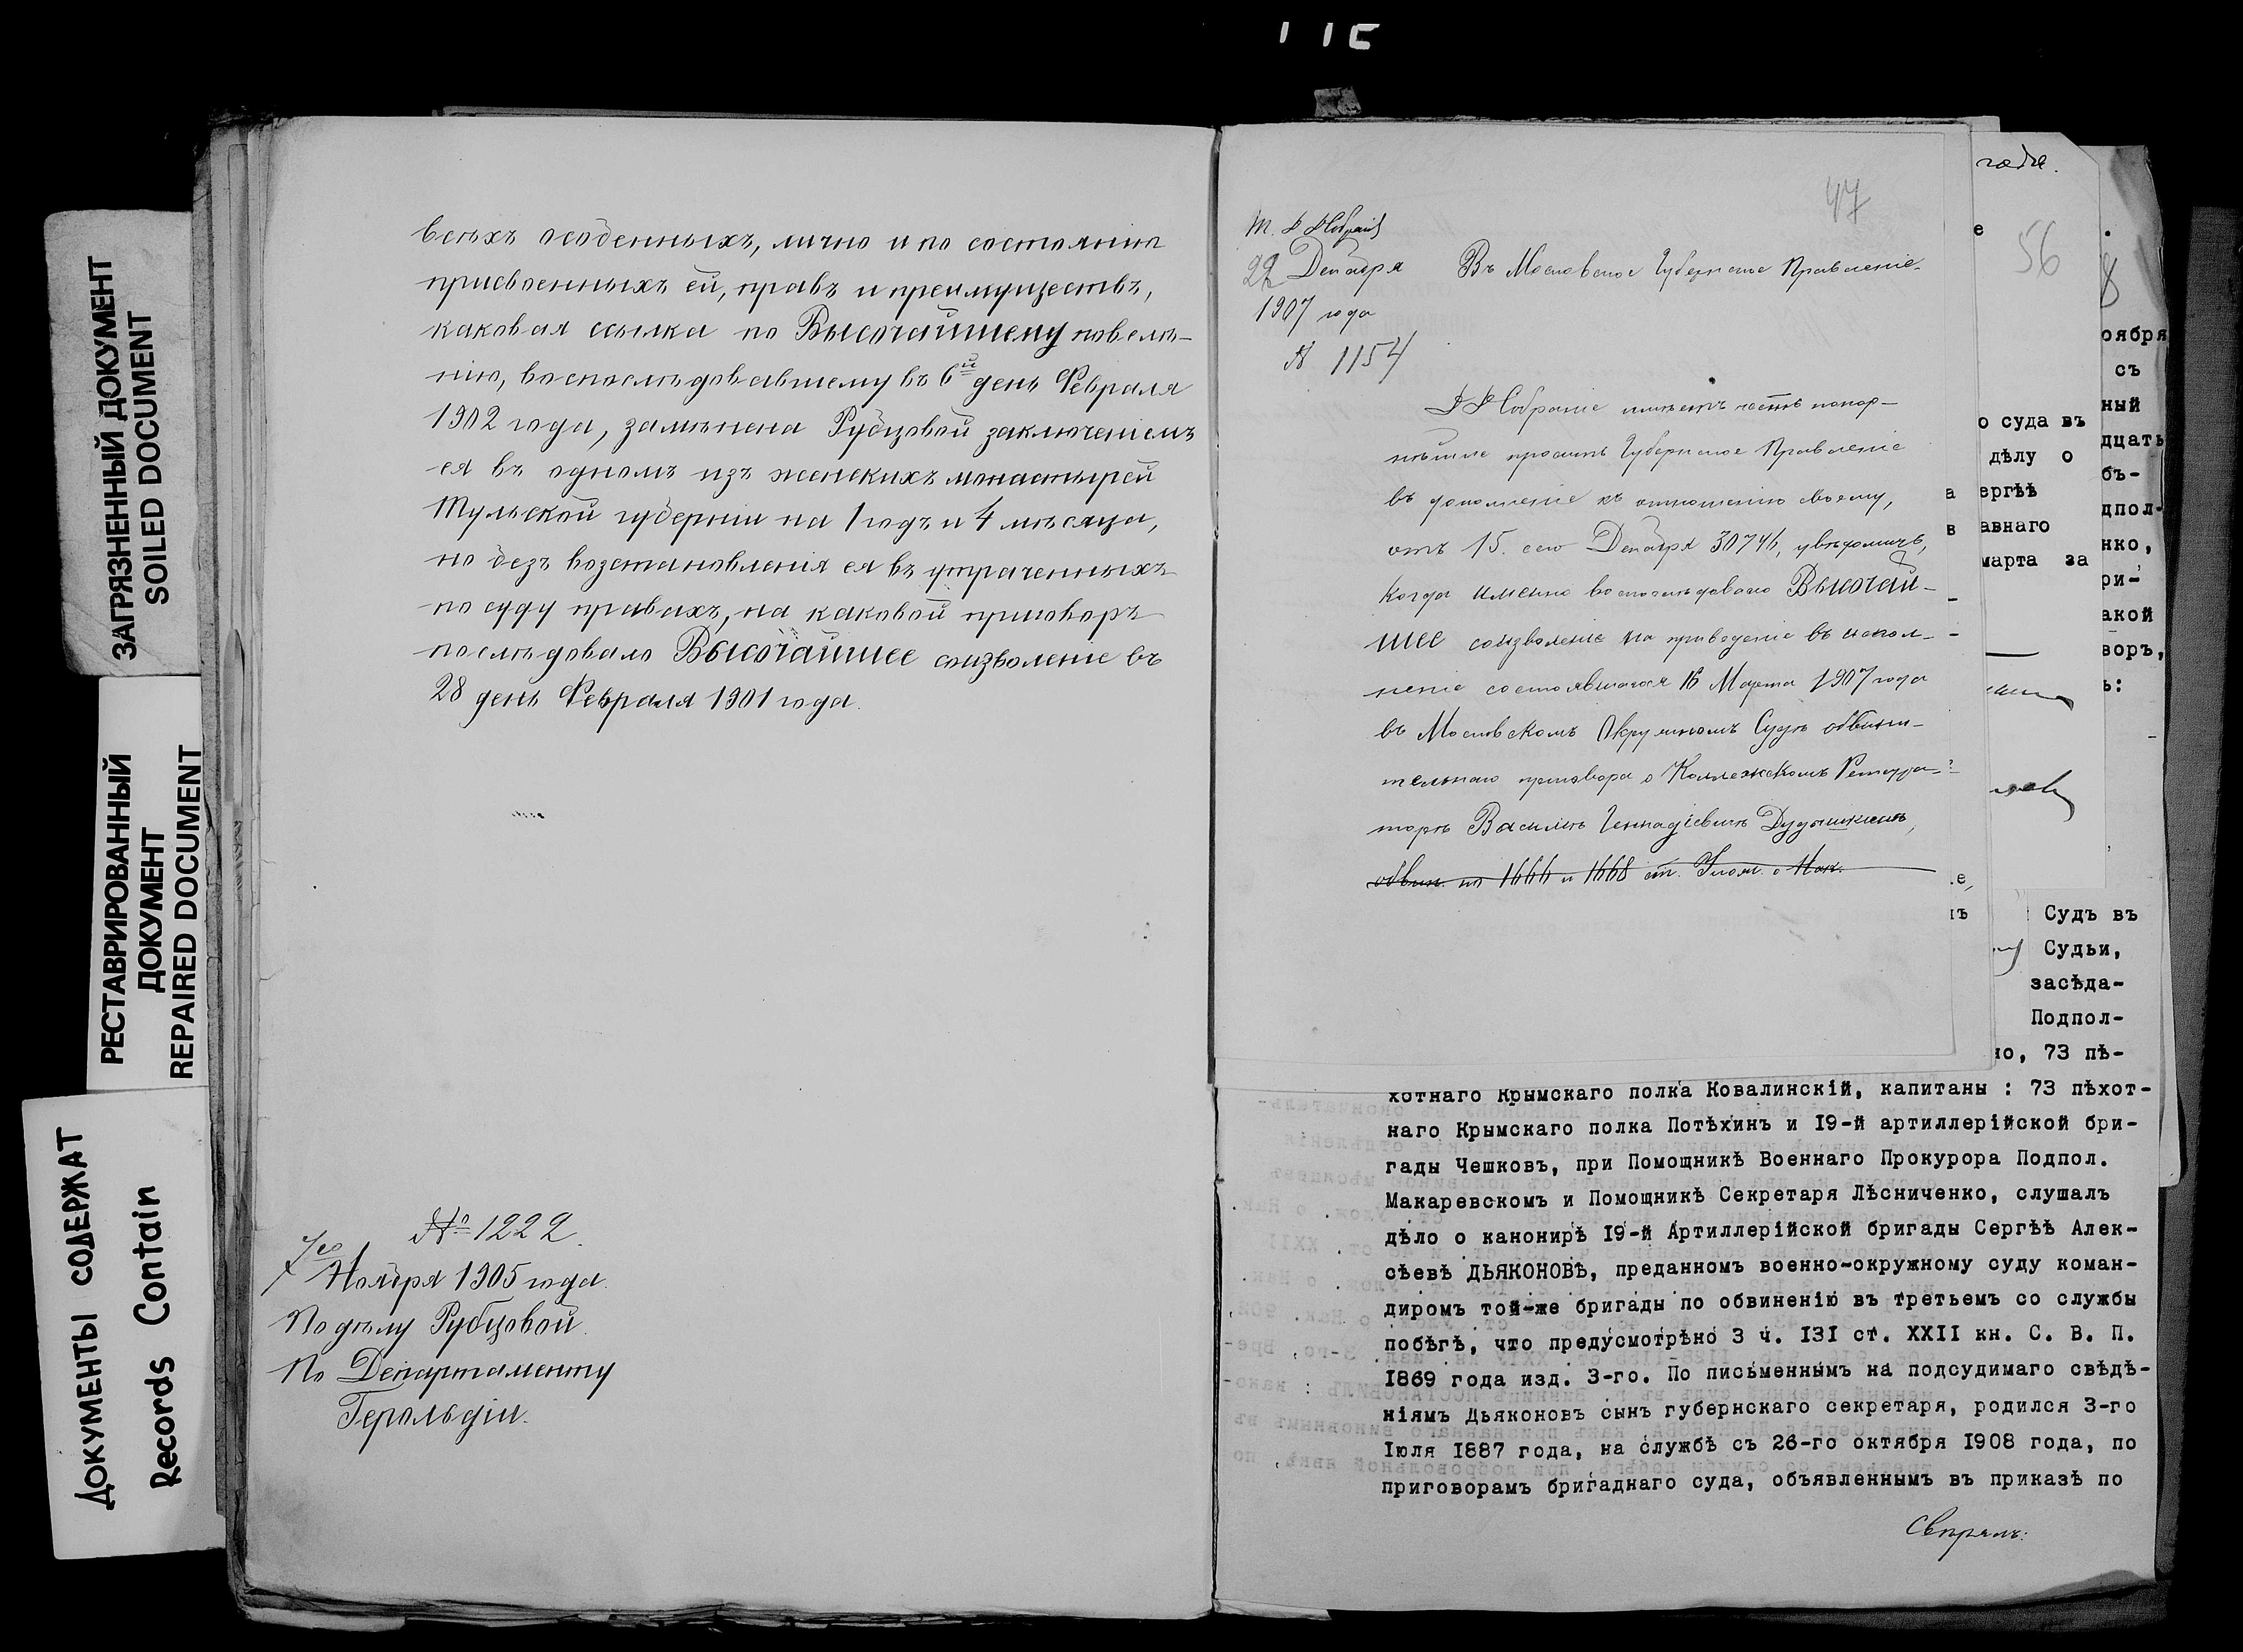 ЗАГРЯЗНЕННЫЙ ДОКУМЕНТ
SOILED DOCUMENT
РЕСТАВРИРОВАННЫЙ
ДОКУМЕНТ
REPAIRED DOCUMENT
ДОКУМЕНТЫ СОДЕРЖАТ
Records Contain
всѣхъ особенныхъ, лично и по состоянію
присвоенныхъ ей, правъ и преимуществъ,
каковая ссылка по Высочайшему повелѣ-
нію, воспослѣдовавшему въ 6й день Февраля
1902 года, замѣнена Рубцовой заключеніемъ
ея въ одномъ изъ женскихъ монастырей
Тульской губерніи на 1 годъ и 4 мѣсяца,
но безъ возстановленія ея въ утраченныхъ
по суду правахъ, на каковой приговоръ
послѣдовало Высочайшее соизволеніе въ
28 день Февраля 1901 года.
№ 1222.
7го Ноября 1905 года.
По дѣлу Рубцовой.
По Департаменту
Герольдіи.
47
22 Декабря
1907 года
№ 1154
Въ Московское Губернское Правленіе.
Д Д Собраніе имѣетъ честь покор-
нѣйше просить Губернское Правленіе
въ дополненіе къ отношенію своему,
отъ 15. сего Декабря 30746, увѣдомить,
когда именно воспослѣдовало Высочай-
шее соизволеніе на приведеніе въ испол-
неніе состоявшагося 16 Марта 1907 года
въ Московскомъ Окружномъ Судѣ обвини-
тельнаго приговора о Коллежскомъ Регистра-
торѣ Василіѣ Геннадіевичѣ Дудышкинѣ,
обвин. по 1666 и 1668 ст. Улож. о Нак.
года.
е
56
о суда въ
дѣлу о
ергѣѣ
авнаго
марта за
оября
съ
ный
дцать
бъ-
дпол-
нко,
ри-
акой
воръ,
ь:
Судъ въ
Судьи,
засѣда-
Подпол-
но, 73 пѣ-
хотнаго Крымскаго полка Ковалинскій, капитаны : 73 пѣхот-
наго Крымскаго полка Потѣхинъ и 19-й артиллерійской бри-
гады Чешковъ, при Помощникѣ Военнаго Прокурора Подпол.
Макаревскомъ и Помощникѣ Секретаря Лѣсниченко, слушалъ
дѣло о канонирѣ 19-й Артиллерійской бригады Сергѣѣ Алек-
сѣевѣ ДЬЯКОНОВѢ, преданномъ военно-окружному суду коман-
диромъ той-же бригады по обвиненію въ третьемъ со службы
побѣгѣ, что предусмотрѣно 3 ч. 131 ст. XXII кн. С. В. П.
1869 года изд. 3-го. По письменнымъ на подсудимаго свѣдѣ-
ніямъ Дьяконовъ сынъ губернскаго секретаря, родился 3-го
Іюля 1887 года, на службѣ съ 26-го октября 1908 года, по
приговорамъ бригаднаго суда, объявленнымъ въ приказѣ по